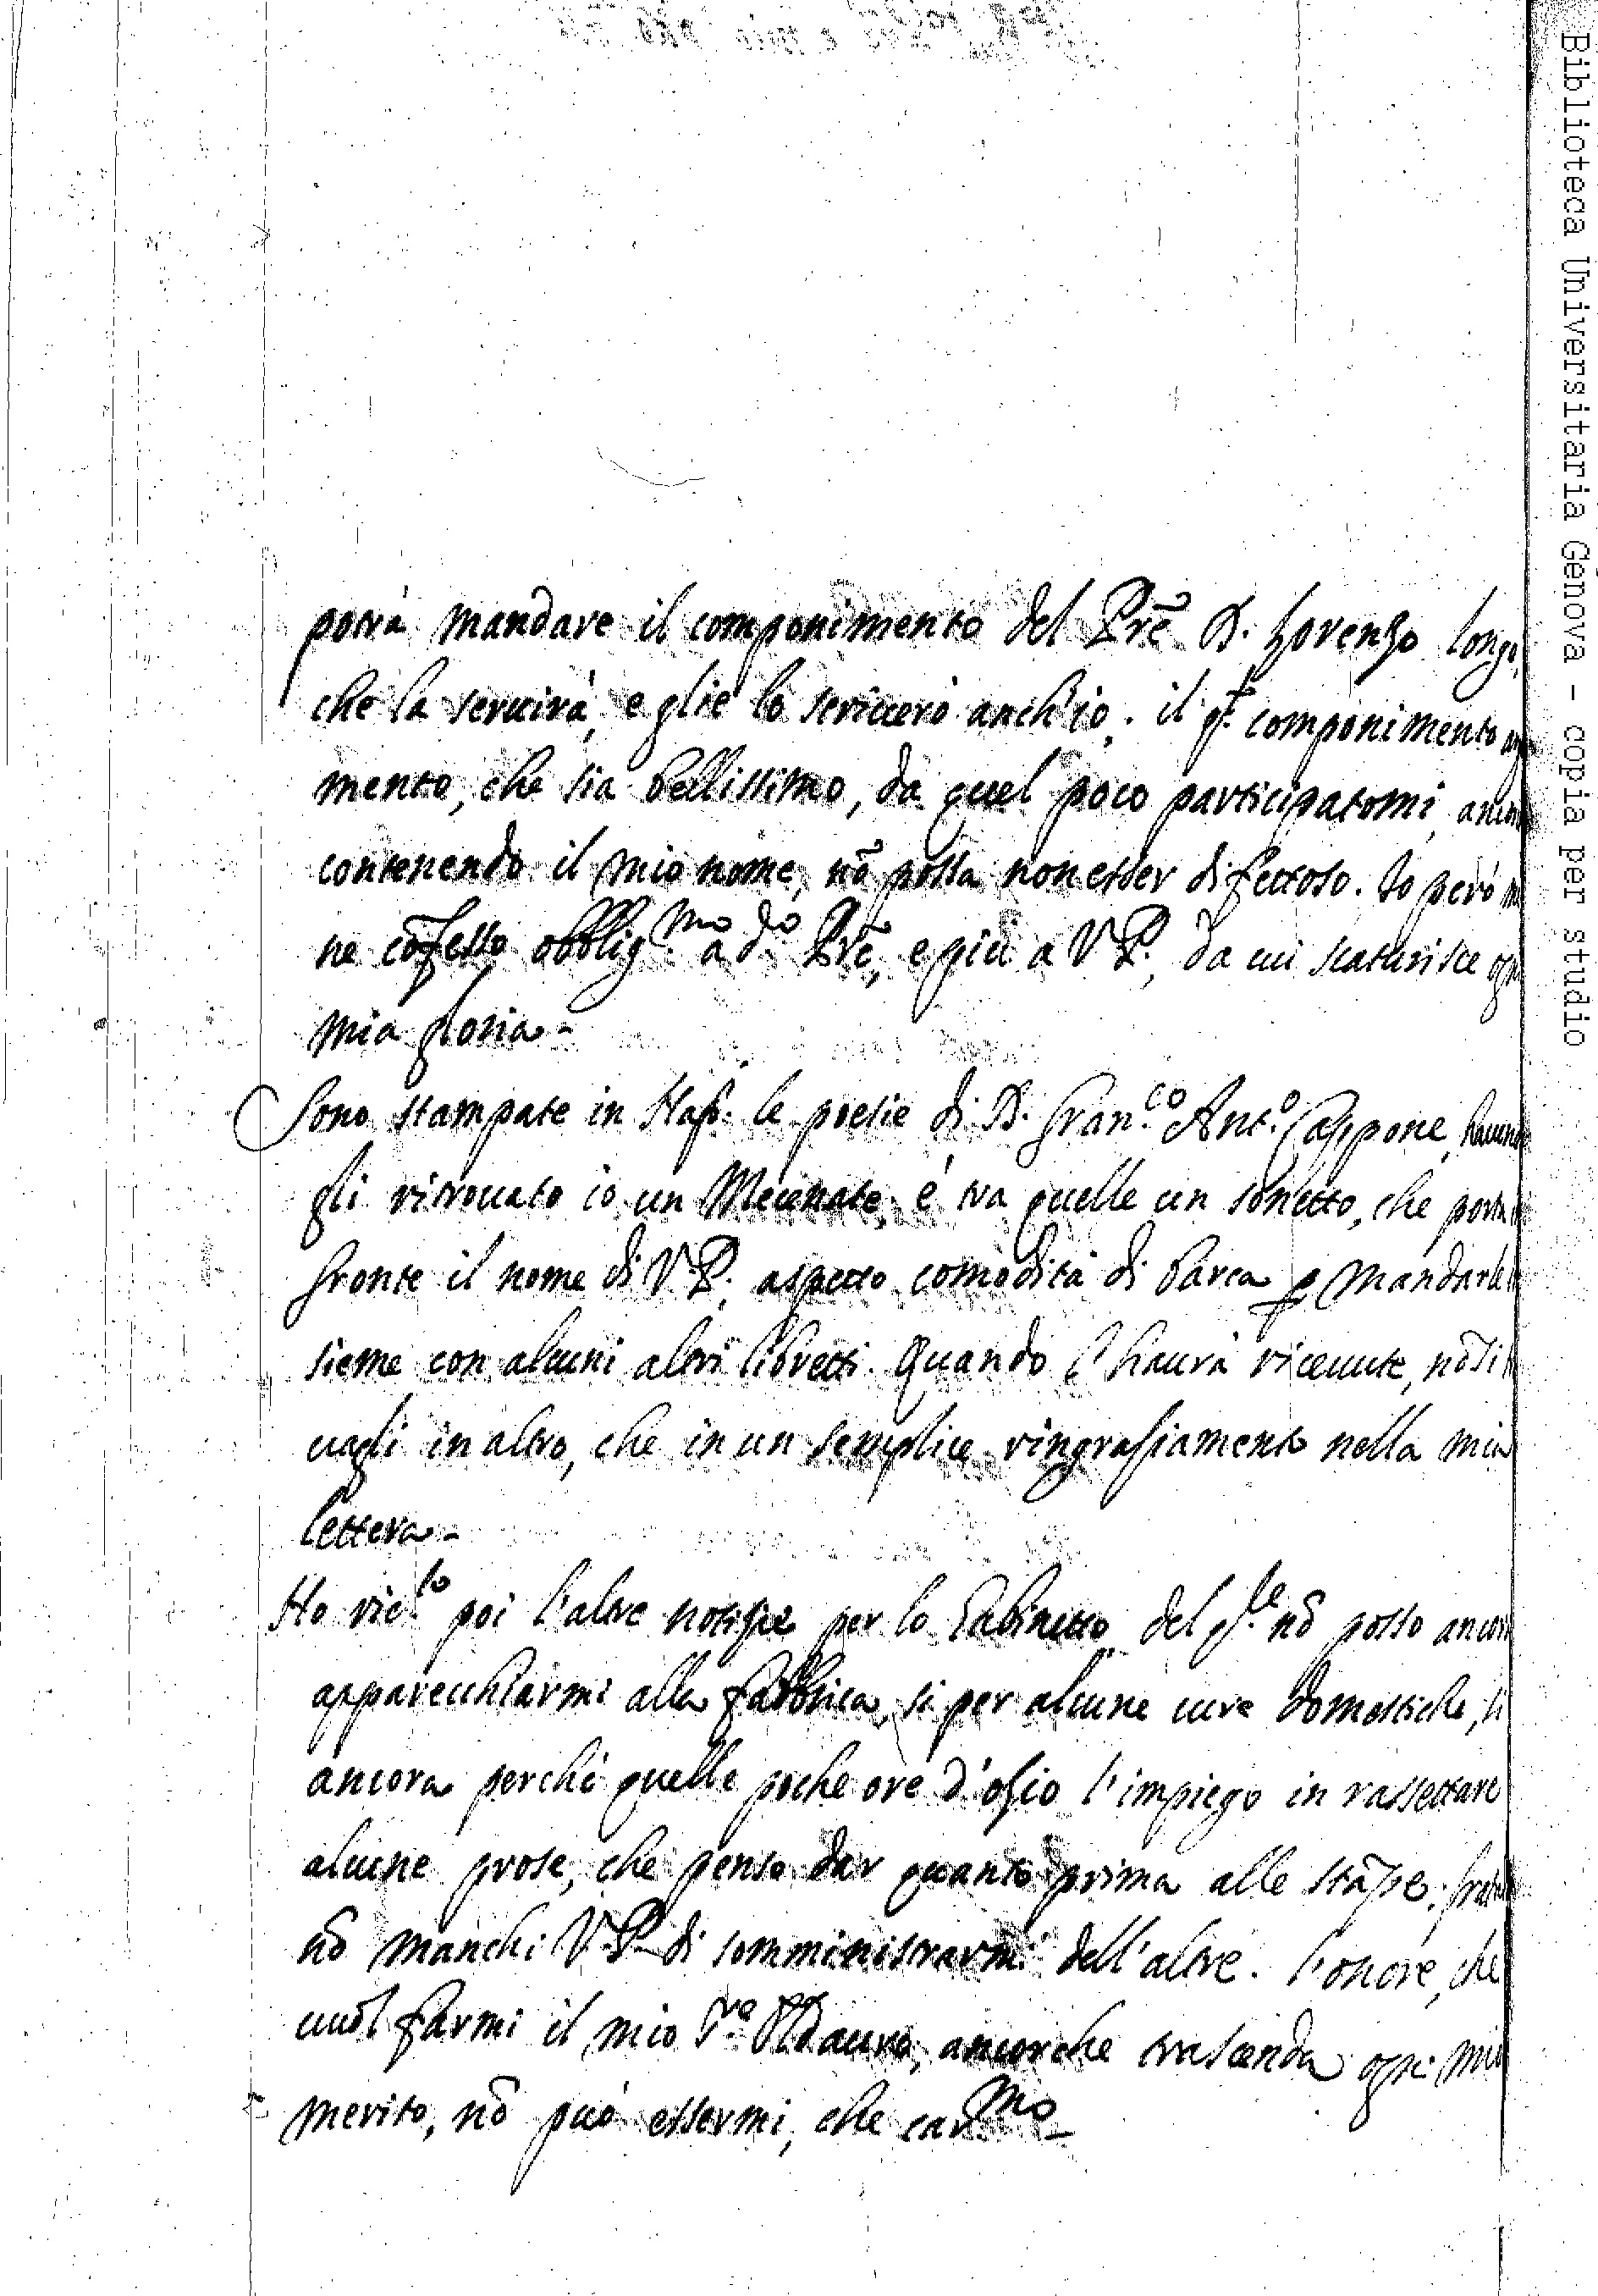 potrà mandare il componimento del Prẽ D. Lorenzo Longo,
che la seruirà, e glie lo scriuerò anch'io. il q.^t componimento
mento, che sia bellissimo, da quel poco participatomi, ancor
contenendo il mio nome, nõ possa non esser difettoso. Io però
ne cõfesso obblig.^mo a d.^o Prẽ, e più a V P. da cui scaturisce ogni
mia gloria.
Sono stampate in Nap. le poesie di D. Fran.^co Ant.^o Cappone, hauendo
gli ritrouato io un Mecenate. è tra quelle un sonetto, che porta
fronte il nome di V P. aspetto comodità di barca p mandarle
sieme con alcuni altri libretti. Quando l'haurà riceuute, nõ si
uagli in altro, che in un semplice ringraziamento nella mia
lettera.
Ho ric.^to poi l'altre notizie per lo Gabinetto del q.^le nõ posso ancora
apparecchiarmi alla fabbrica, si per alcune cure domestiche, si
ancora perchè quelle poche ore d'ozio l'impiego in rassettare
alcune prose, che penso dar quanto prima alle stãpe.
nõ manchi V. P. di somministrarmi dell'altre. l'onore, che
uuol farmi il mio S.^re Aldauro, ancorche trascenda ogni mio
merito, nõ può essermi, che car.^mo
Biblioteca Universitaria Genova - copia per studio